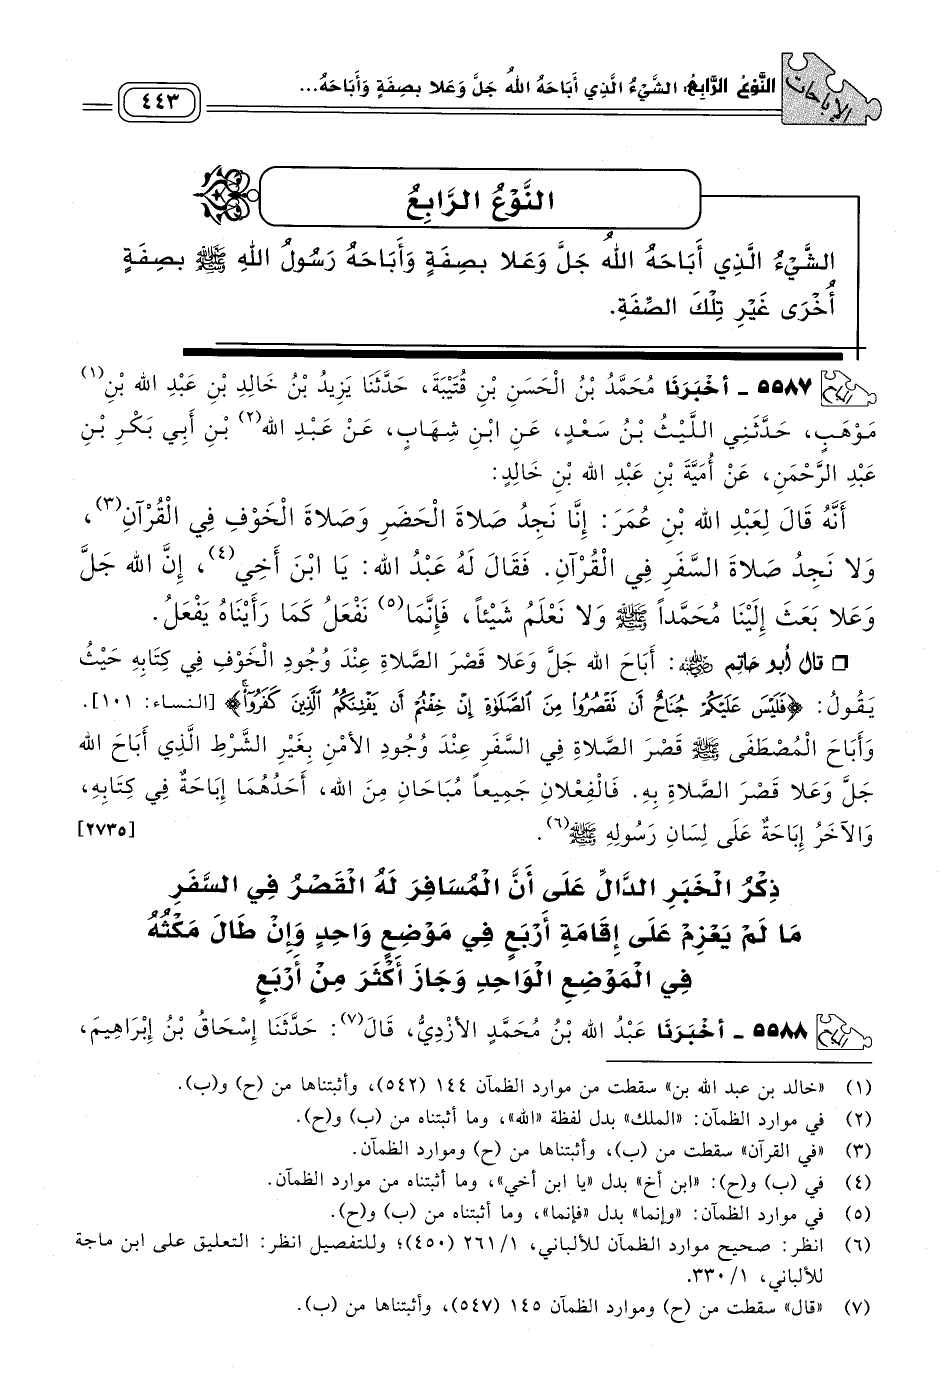 الإباحات
النَّوْعُ الرَّابِعُ: الشَّيْءُ الَّذِي أَبَاحَهُ اللهُ جَلَّ وَعَلا بِصِفَةٍ وَأَبَاحَهُ...
٤٤٣
النَّوْعُ الرَّابِعُ
الشَّيْءُ الَّذِي أَبَاحَهُ اللهُ جَلَّ وَعَلا بِصِفَةٍ وَأَبَاحَهُ رَسُولُ اللهِ ﷺ بِصِفَةٍ
أُخْرَى غَيْرِ تِلْكَ الصِّفَةِ.
٥٥٨٧ - أخْبَرَنَا مُحَمَّدُ بْنُ الْحَسَنِ بْنِ قُتَيْبَةَ، حَدَّثَنَا يَزِيدُ بْنُ خَالِدِ بْنِ عَبْدِ الله بْنِ(١)
مَوْهَبٍ، حَدَّثَنِي اللَّيْثُ بْنُ سَعْدٍ، عَنِ ابْنِ شِهَابٍ، عَنْ عَبْدِ الله(٢) بْنِ أَبِي بَكْرِ بْنِ
عَبْدِ الرَّحْمَنِ، عَنْ أُمَيَّةَ بْنِ عَبْدِ الله بْنِ خَالِدٍ:
أَنَّهُ قَالَ لِعَبْدِ الله بْنِ عُمَرَ: إِنَّا نَجِدُ صَلاةَ الْحَضَرِ وَصَلاةَ الْخَوْفِ فِي الْقُرْآنِ(٣)،
وَلا نَجِدُ صَلاةَ السَّفَرِ فِي الْقُرْآنِ. فَقَالَ لَهُ عَبْدُ الله: يَا ابْنَ أَخِي(٤)، إِنَّ الله جَلَّ
وَعَلا بَعَثَ إِلَيْنَا مُحَمَّداً ﷺ وَلا نَعْلَمُ شَيْئاً، فَإِنَّمَا(٥) نَفْعَلُ كَمَا رَأَيْنَاهُ يَفْعَلُ.
□ قال أبو حاتم ﵁: أَبَاحَ الله جَلَّ وَعَلا قَصْرَ الصَّلاةِ عِنْدَ وُجُودِ الْخَوْفِ فِي كِتَابِهِ حَيْثُ
يَقُولُ: ﴿فَلَيْسَ عَلَيْكُمْ جُنَاحٌ أَن تَقْصُرُوا۟ مِنَ ٱلصَّلَوٰةِ إِنْ خِفْتُمْ أَن يَفْتِنَكُمُ ٱلَّذِينَ كَفَرُوٓا۟﴾ [النساء: ١٠١].
وَأَبَاحَ الْمُصْطَفَى ﷺ قَصْرَ الصَّلاةِ فِي السَّفَرِ عِنْدَ وُجُودِ الأَمْنِ بِغَيْرِ الشَّرْطِ الَّذِي أَبَاحَ الله
جَلَّ وَعَلا قَصْرَ الصَّلاةِ بِهِ. فَالْفِعْلانِ جَمِيعاً مُبَاحَانِ مِنَ الله، أَحَدُهُمَا إِبَاحَةٌ فِي كِتَابِهِ،
وَالآخَرُ إِبَاحَةٌ عَلَى لِسَانِ رَسُولِهِ ﷺ(٦). [٢٧٣٥]
ذِكْرُ الْخَبَرِ الدَّالِّ عَلَى أَنَّ الْمُسَافِرَ لَهُ الْقَصْرُ فِي السَّفَرِ
مَا لَمْ يَعْزِمْ عَلَى إِقَامَةِ أَرْبَعٍ فِي مَوْضِعٍ وَاحِدٍ وَإِنْ طَالَ مَكْثُهُ
فِي الْمَوْضِعِ الْوَاحِدِ وَجَازَ أَكْثَرَ مِنْ أَرْبَعٍ
٥٥٨٨ - أخْبَرَنَا عَبْدُ الله بْنُ مُحَمَّدٍ الأَزْدِيُّ، قَالَ(٧): حَدَّثَنَا إِسْحَاقُ بْنُ إِبْرَاهِيمَ،
(١) «خالد بن عبد الله بن» سقطت من موارد الظمآن ١٤٤ (٥٤٢)، وأثبتناها من (ح) و(ب).
(٢) في موارد الظمآن: «الملك» بدل لفظة «الله»، وما أثبتناه من (ب) و(ح).
(٣) «في القرآن» سقطت من (ب)، وأثبتناها من (ح) وموارد الظمآن.
(٤) في (ب) و(ح): «ابن أخ» بدل «يا ابن أخي»، وما أثبتناه من موارد الظمآن.
(٥) في موارد الظمآن: «وإنما» بدل «فإنما»، وما أثبتناه من (ب) و(ح).
(٦) انظر: صحيح موارد الظمآن للألباني، ١/ ٢٦١ (٤٥٠)؛ وللتفصيل انظر: التعليق على ابن ماجة
للألباني، ١/ ٣٣٠.
(٧) «قال» سقطت من (ح) وموارد الظمآن ١٤٥ (٥٤٧)، وأثبتناها من (ب).